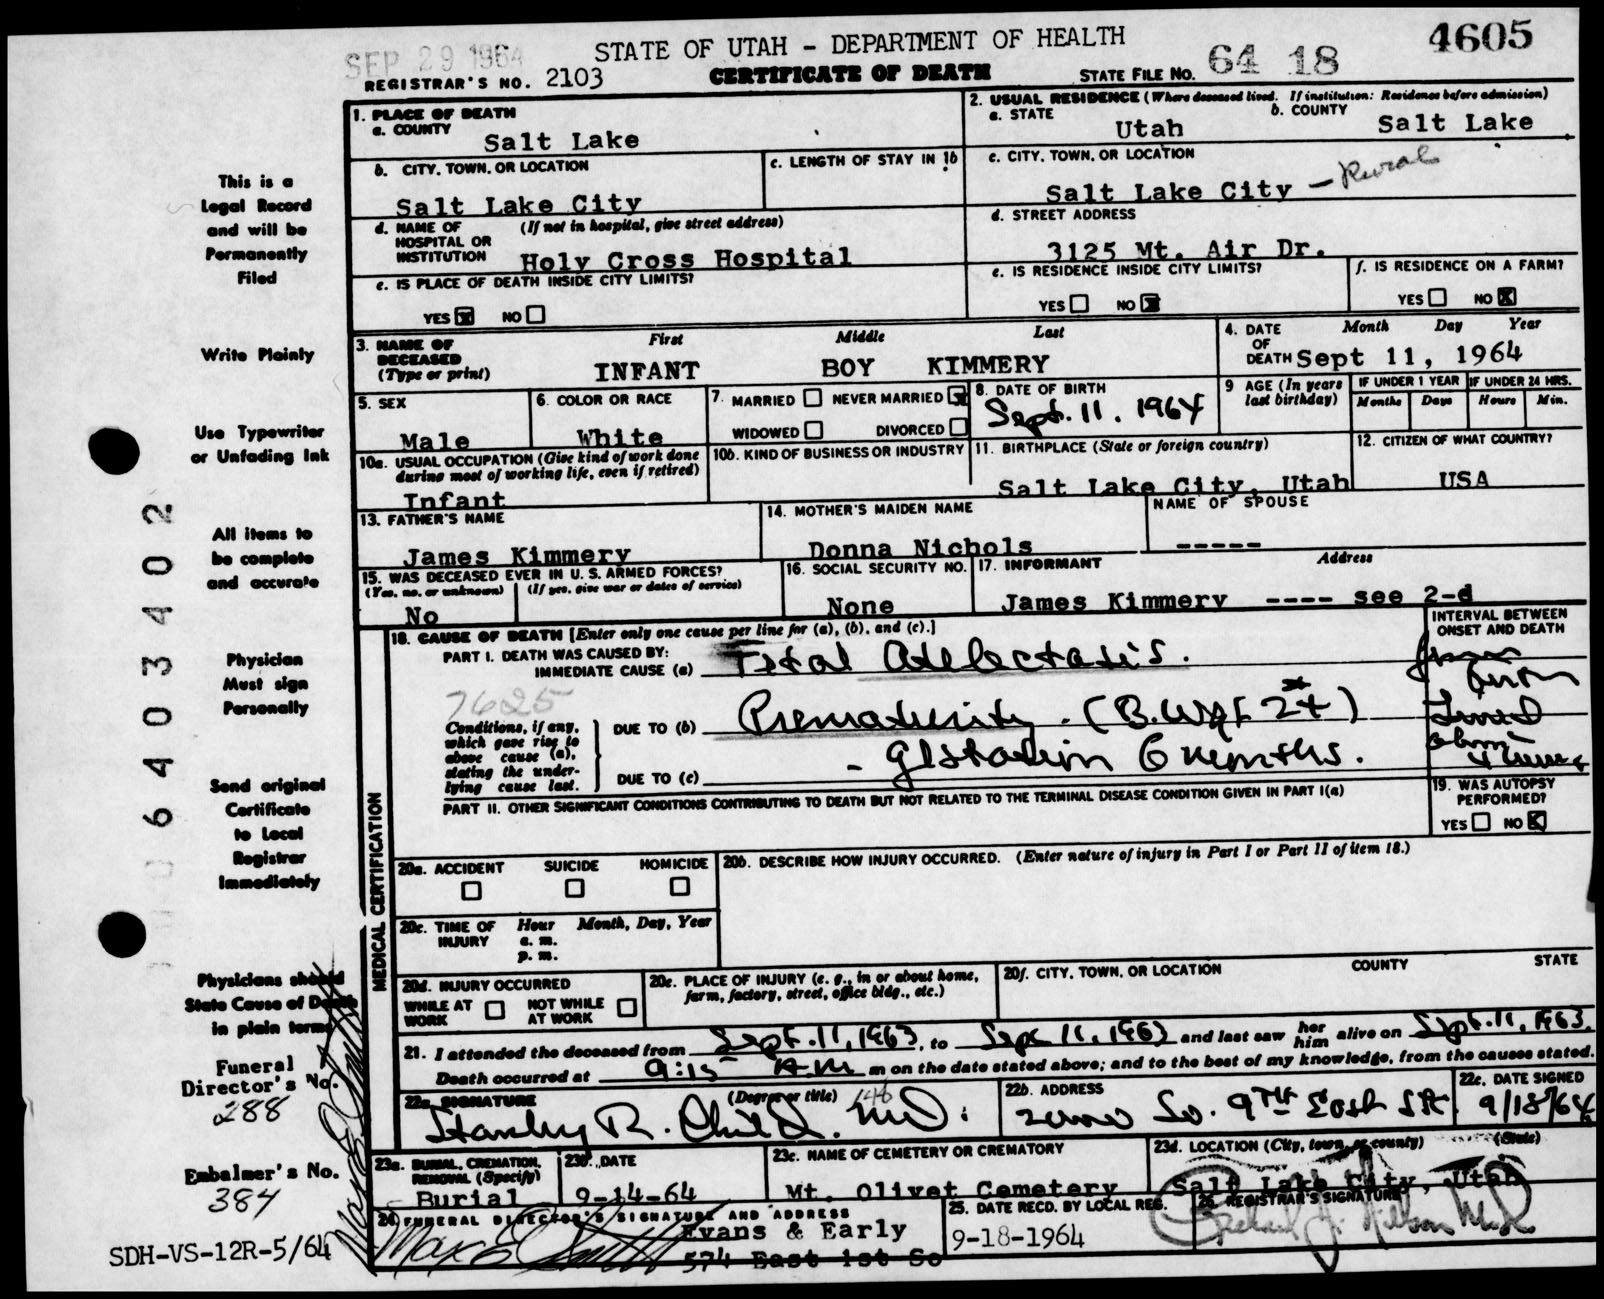 SEP 29 1964
STATE OF UTAH - DEPARTMENT OF HEALTH
4605
REGISTRAR'S NO. 2103
CERTIFICATE OF DEATH
STATE FILE NO. 64 18
1. PLACE OF DEATH
a. COUNTY
Salt Lake
2. USUAL RESIDENCE (Where deceased lived. If institution: Residence before admission)
a. STATE
Utah
b. COUNTY
Salt Lake
b. CITY, TOWN, OR LOCATION
Salt Lake City
c. LENGTH OF STAY IN 1b
c. CITY, TOWN, OR LOCATION
Salt Lake City - Rural
d. NAME OF HOSPITAL OR INSTITUTION
(If not in hospital, give street address)
Holy Cross Hospital
d. STREET ADDRESS
3125 Mt. Air Dr.
e. IS PLACE OF DEATH INSIDE CITY LIMITS?
YES X NO
e. IS RESIDENCE INSIDE CITY LIMITS?
YES NO X
f. IS RESIDENCE ON A FARM?
YES NO X
3. NAME OF DECEASED (Type or print)
First Middle Last
INFANT BOY KIMMERY
4. DATE OF DEATH
Month Day Year
Sept 11, 1964
5. SEX
Male
6. COLOR OR RACE
White
7. MARRIED NEVER MARRIED X
WIDOWED DIVORCED
8. DATE OF BIRTH
Sept. 11. 1964
9 AGE (In years last birthday)
IF UNDER 1 YEAR
Months Days
IF UNDER 24 HRS.
Hours Min.
10a. USUAL OCCUPATION (Give kind of work done during most of working life, even if retired)
Infant
10b. KIND OF BUSINESS OR INDUSTRY
11. BIRTHPLACE (State or foreign country)
Salt Lake City, Utah
12. CITIZEN OF WHAT COUNTRY?
USA
13. FATHER'S NAME
James Kimmery
14. MOTHER'S MAIDEN NAME
Donna Nichols
NAME OF SPOUSE
-----
15. WAS DECEASED EVER IN U. S. ARMED FORCES?
(Yes, no, or unknown) (If yes, give war or dates of service)
No
16. SOCIAL SECURITY NO.
None
17. INFORMANT Address
James Kimmery ---- see 2-d
MEDICAL CERTIFICATION
18. CAUSE OF DEATH [Enter only one cause per line for (a), (b), and (c).]
INTERVAL BETWEEN ONSET AND DEATH
PART I. DEATH WAS CAUSED BY:
IMMEDIATE CAUSE (a) Fetal Atelectasis.
from birth
7625
Conditions, if any, which gave rise to above cause (a), stating the underlying cause last.
DUE TO (b) Prematurity. (B. Wgt 2#)
Lived
- gestation 6 months.
DUE TO (c)
PART II. OTHER SIGNIFICANT CONDITIONS CONTRIBUTING TO DEATH BUT NOT RELATED TO THE TERMINAL DISEASE CONDITION GIVEN IN PART I(a)
19. WAS AUTOPSY PERFORMED?
YES NO X
20a. ACCIDENT SUICIDE HOMICIDE
20b. DESCRIBE HOW INJURY OCCURRED. (Enter nature of injury in Part I or Part II of item 18.)
20c. TIME OF INJURY
Hour Month, Day, Year
a. m.
p. m.
20d. INJURY OCCURRED
WHILE AT WORK NOT WHILE AT WORK
20e. PLACE OF INJURY (e. g., in or about home, farm, factory, street, office bldg., etc.)
20f. CITY, TOWN, OR LOCATION COUNTY STATE
21. I attended the deceased from Sept. 11, 1963, to Sept 11, 1963 and last saw her him alive on Sept. 11, 1963.
Death occurred at 9:15 A.M m on the date stated above; and to the best of my knowledge, from the causes stated.
22a. SIGNATURE (Degree or title)
Stanley R. Child. M.D.
148
22b. ADDRESS
So. 9th East St.
22c. DATE SIGNED
9/18/64
23a. BURIAL, CREMATION, REMOVAL (Specify)
Burial
23b. DATE
9-14-64
23c. NAME OF CEMETERY OR CREMATORY
Mt. Olivet Cemetery
23d. LOCATION (City, town, or county) (State)
Salt Lake City, Utah
24. FUNERAL DIRECTOR'S SIGNATURE AND ADDRESS
Max E Smith
Evans & Early
574 East 1st So
25. DATE RECD. BY LOCAL REG.
9-18-1964
26. REGISTRAR'S SIGNATURE
This is a
Legal Record
and will be
Permanently
Filed
Write Plainly
Use Typewriter
or Unfading Ink
All items to
be complete
and accurate
Physician
Must sign
Personally
Send original
Certificate
to Local
Registrar
Immediately
Physicians should
State Cause of Death
in plain terms
Funeral
Director's No.
288
Embalmer's No.
384
SDH-VS-12R-5/64
Max E Smith
6403402